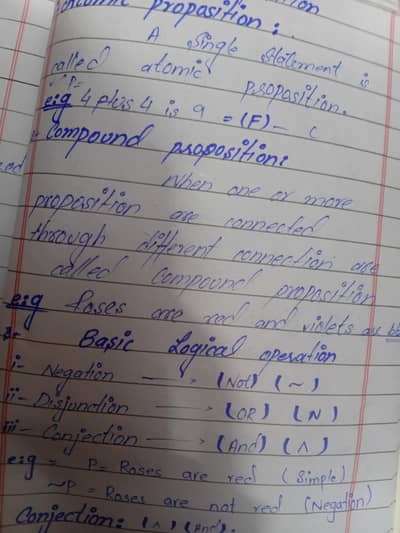 proposition :
A single statement is
called atomic proposition.
e.g 4 plus 4 is 9 = (F) – (
Compound proposition:
When one or more
proposition are connected
through different connection are
called compound proposition
e.g Roses are red and violets are
Basic Logical operation
i- Negation → (Not) (~)
ii- Disjunction → (OR) (N)
iii- Conjection → (And) (∧)
e.g = P = Roses are red (Simple)
~P = Roses are not red (Negation)
Conjection: (∧) (And).